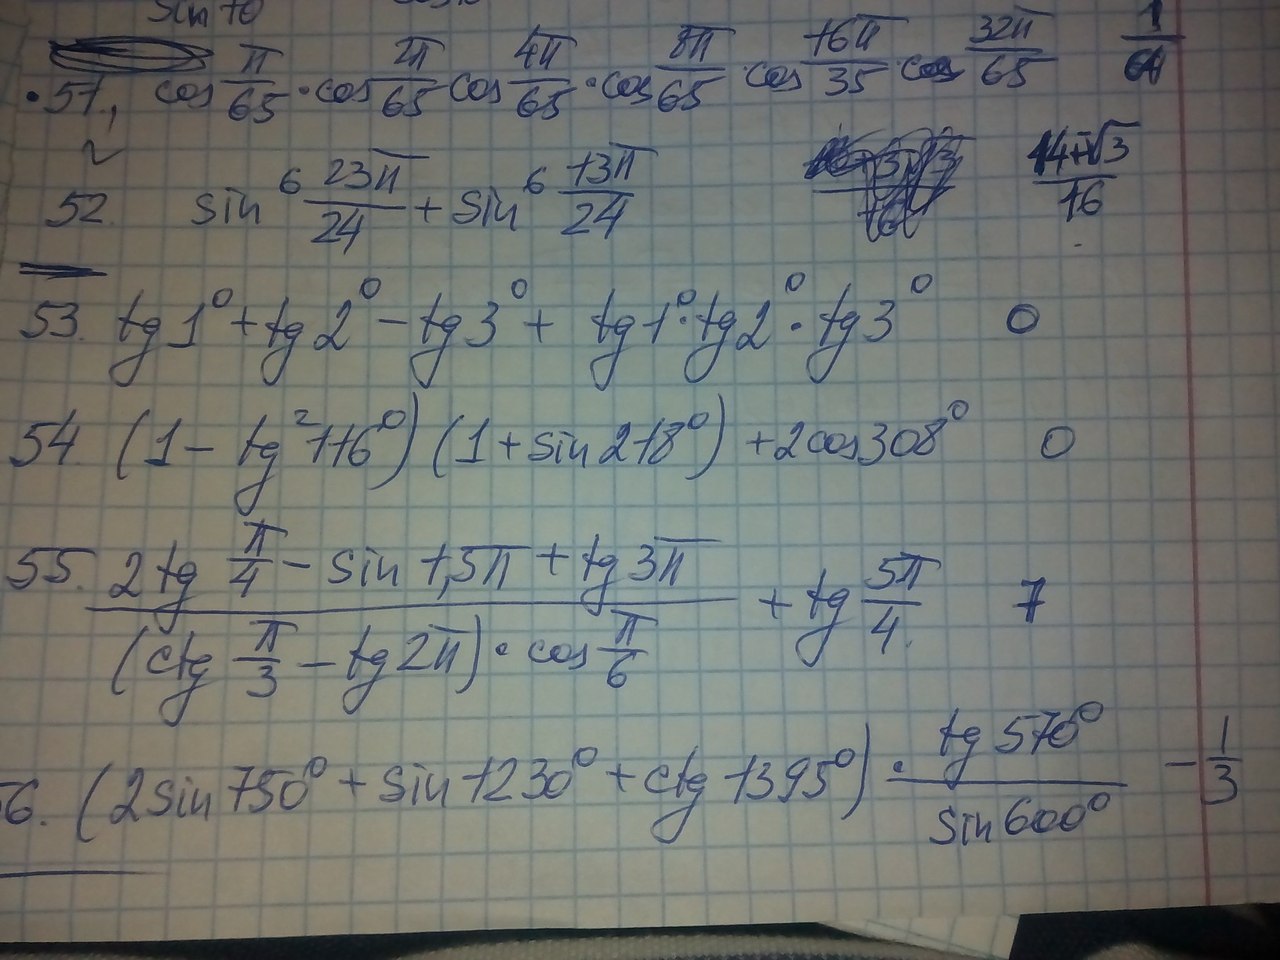 sin 70
51. cos π/65 · cos 2π/65 cos 4π/65 · cos 8π/65 · cos 16π/35 · cos 32π/65 1/64
52. sin⁶ 23π/24 + sin⁶ 13π/24 14+√3/16
53. tg1° + tg2° - tg3° + tg1°·tg2°·tg3° 0
54. (1 - tg²116°)(1 + sin218°) + 2cos308° 0
55. 2tg π/4 - sin 1,5π + tg3π / (ctg π/3 - tg2π) · cos π/6 + tg 5π/4 7
56. (2sin750° + sin1230° + ctg1395°) · tg570°/sin600° -1/3